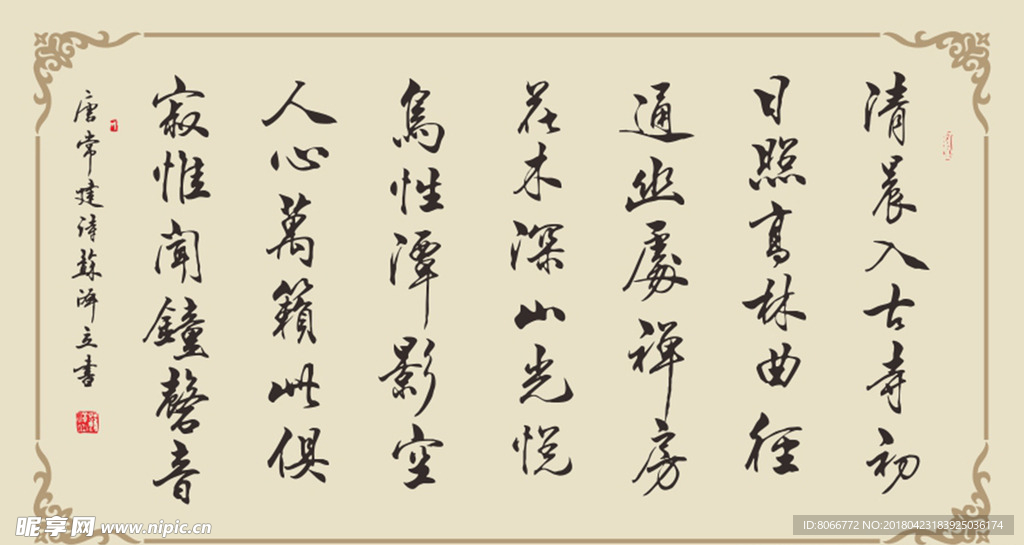 清晨入古寺初
日照高林曲徑
通幽處禅房
花木深山光悦
鳥性潭影空
人心萬籟此俱
寂惟聞鐘磬音
唐常建诗蘇泽立書
昵享网 www.nipic.cn
ID:8066772 NO:20180423183925036174